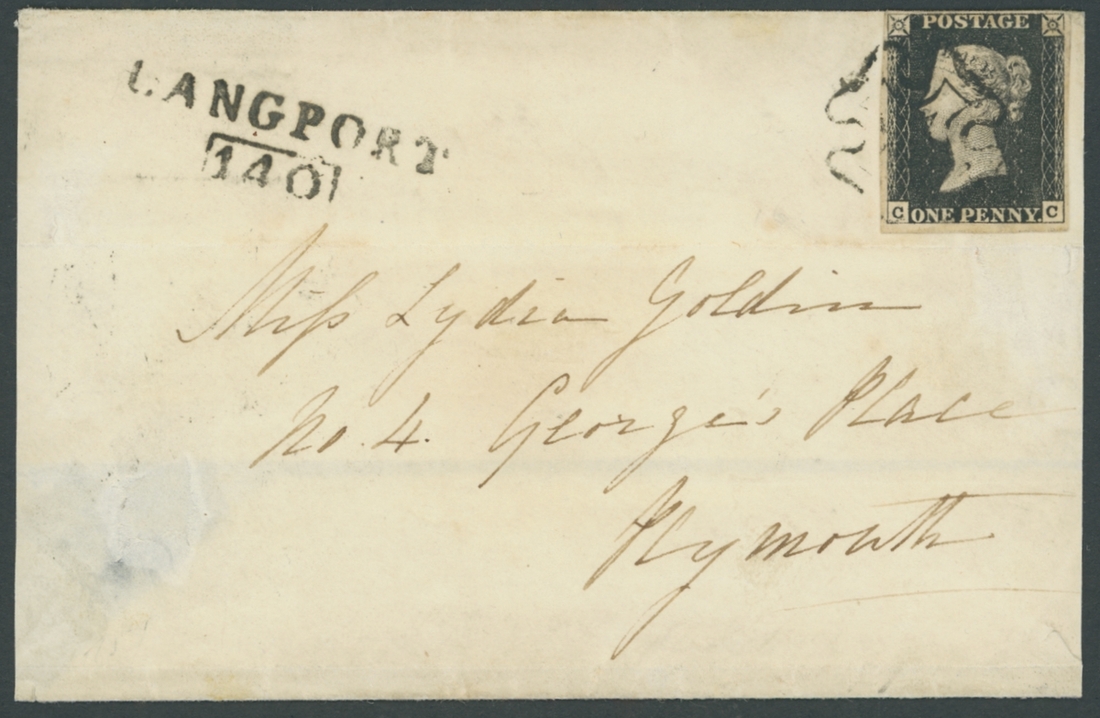 LANGPORT
140
POSTAGE
C ONE PENNY. C
Miss Lydia Goldin
No. 4. George's Place
Plymouth